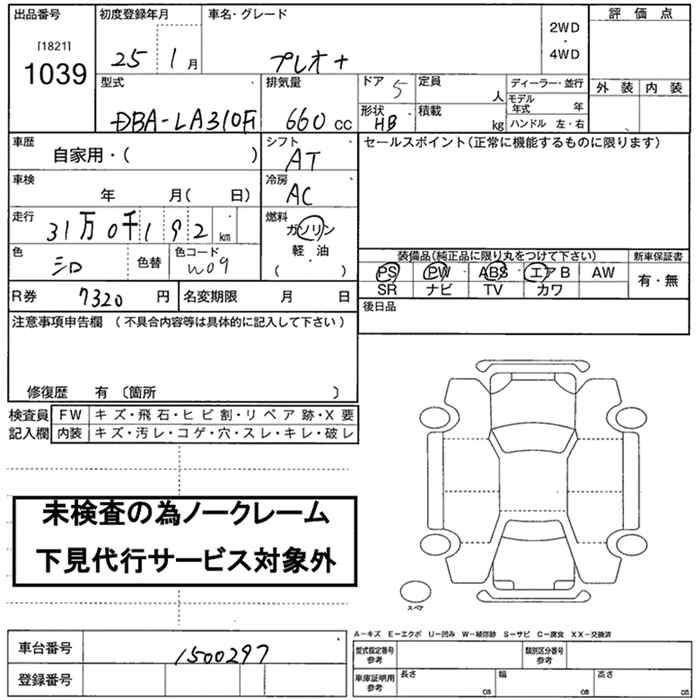 出品番号 初度登録年月 車名・グレード 2WD 評価点
[1821] ・
1039 25 1 月 プレオ+ 4WD
型式 排気量 ドア 5 定員 人 ディーラー・並行 外装 内装
モデル年式 年
DBA-LA310F 660 cc 形状 HB 積載 kg ハンドル 左・右
車歴 シフト セールスポイント(正常に機能するものに限ります)
自家用・( ) AT
車検 冷房
年 月( 日) AC
走行 燃料
31万0千192 km ガソリン
色 色替 色コード 軽・油 装備品(純正品に限り丸をつけて下さい) 新車保証書
シロ W09 ( ・ ) PS PW ABS エアB AW 有・無
SR ナビ TV カワ
R券 7320 円 名変期限 月 日 後日品
注意事項申告欄 (不具合内容等は具体的に記入して下さい)
修復歴 有 〔箇所 〕
検査員 FW キズ・飛石・ヒビ割・リペア跡・X要
記入欄 内装 キズ・汚レ・コゲ・穴・スレ・キレ・破レ
未検査の為ノークレーム
下見代行サービス対象外
スペア
A-キズ E-エクボ U-凹み W-補修跡 S-サビ C-腐食 XX-交換済
車台番号 1500297 型式指定番号 参考 類別区分番号 参考
登録番号 車庫証明用 参考 長さ cm 幅 cm 高さ cm